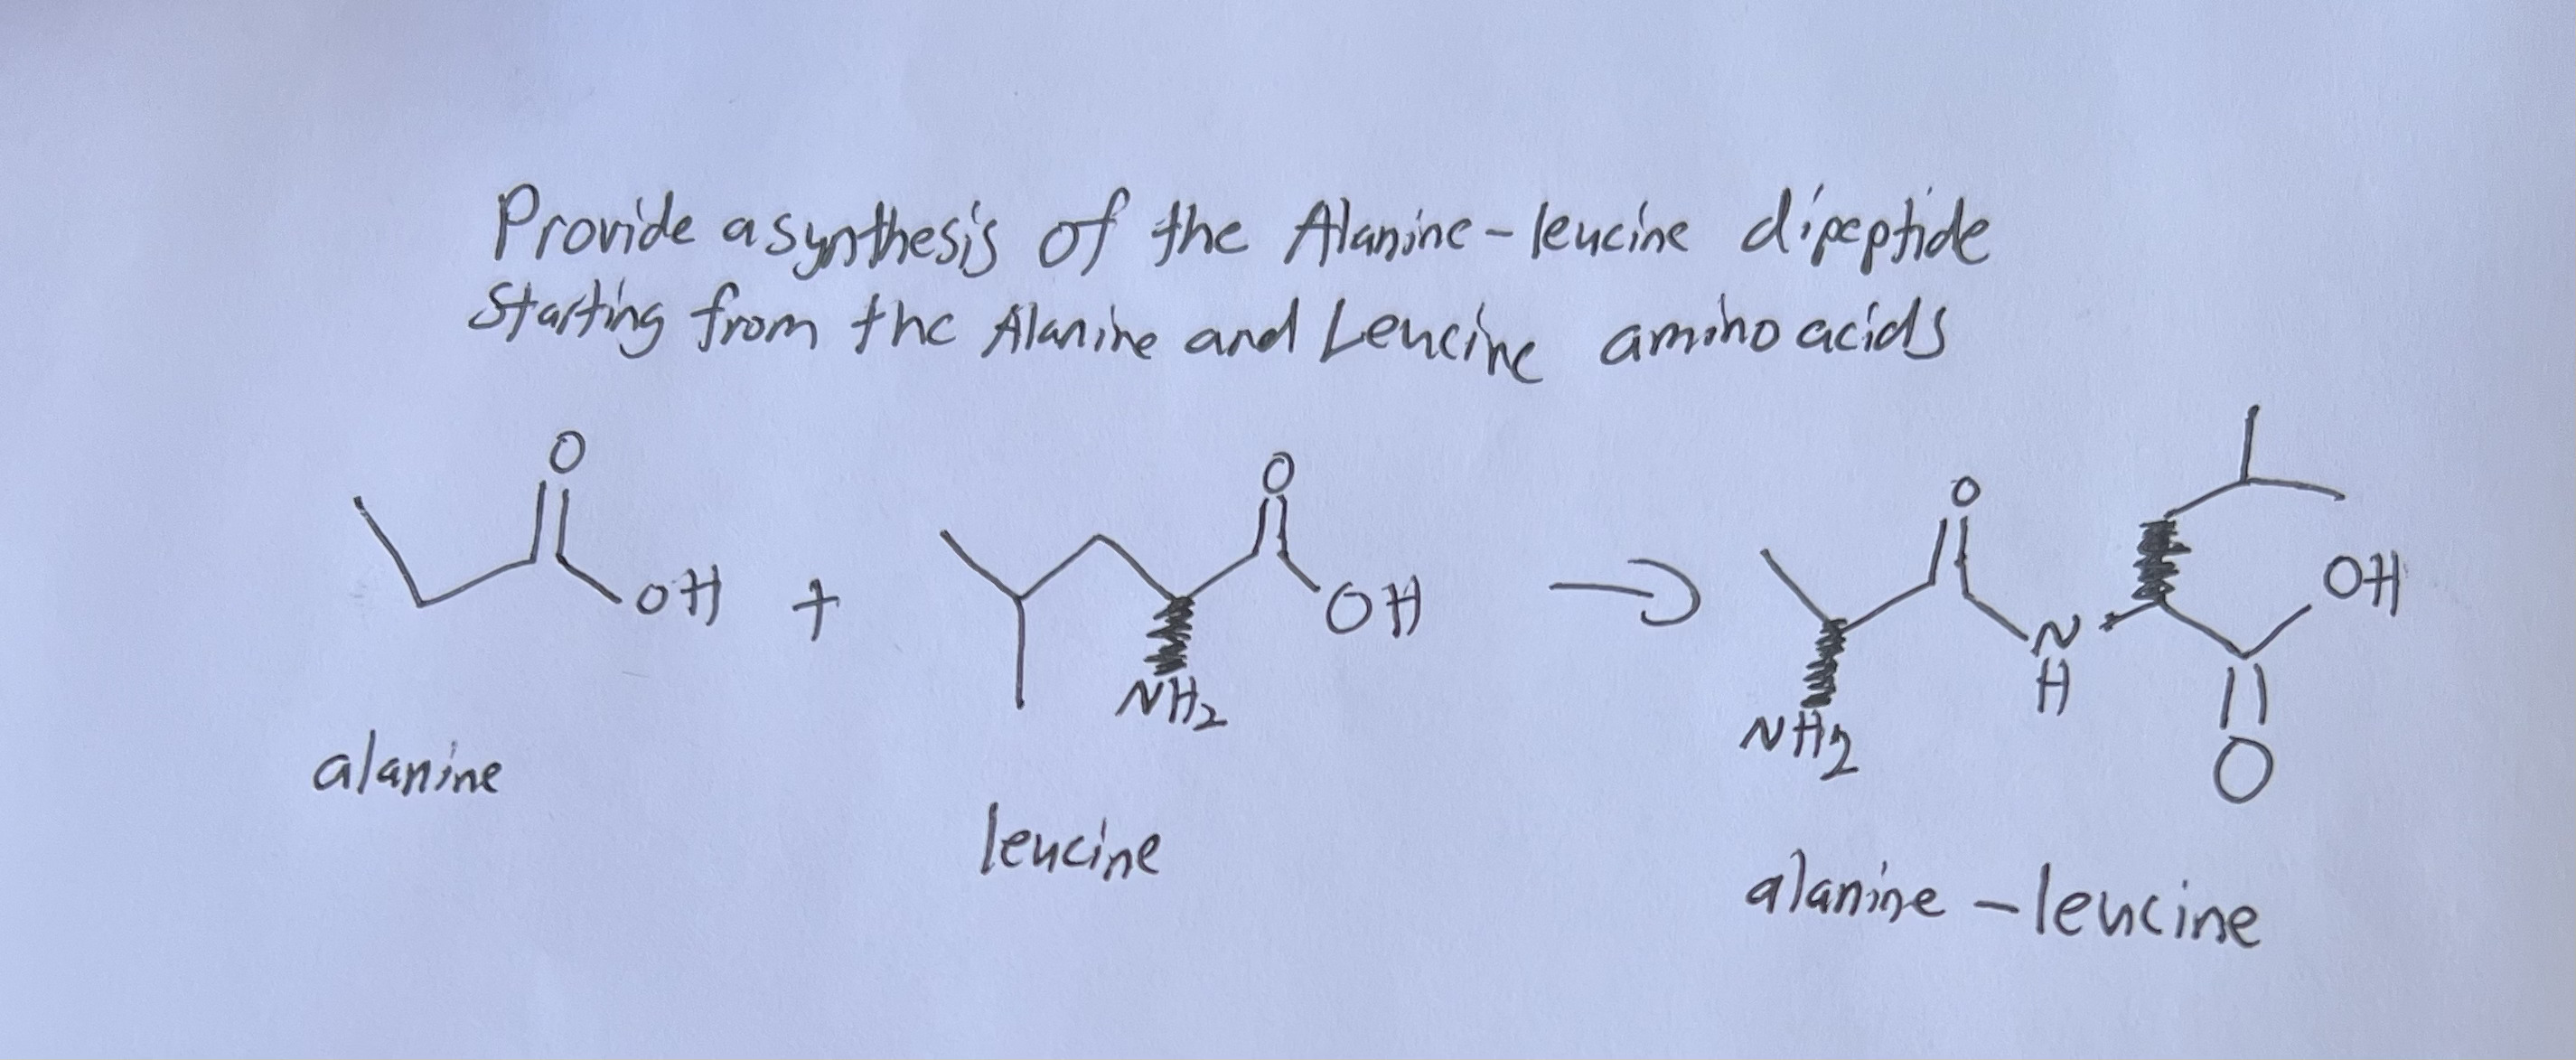 Provide a synthesis of the Alanine-leucine dipeptide
Starting from the Alanine and Leucine amino acids
O
OH
+
O
OH
NH2
O
N
H
NH2
OH
O
alanine
leucine
alanine-leucine